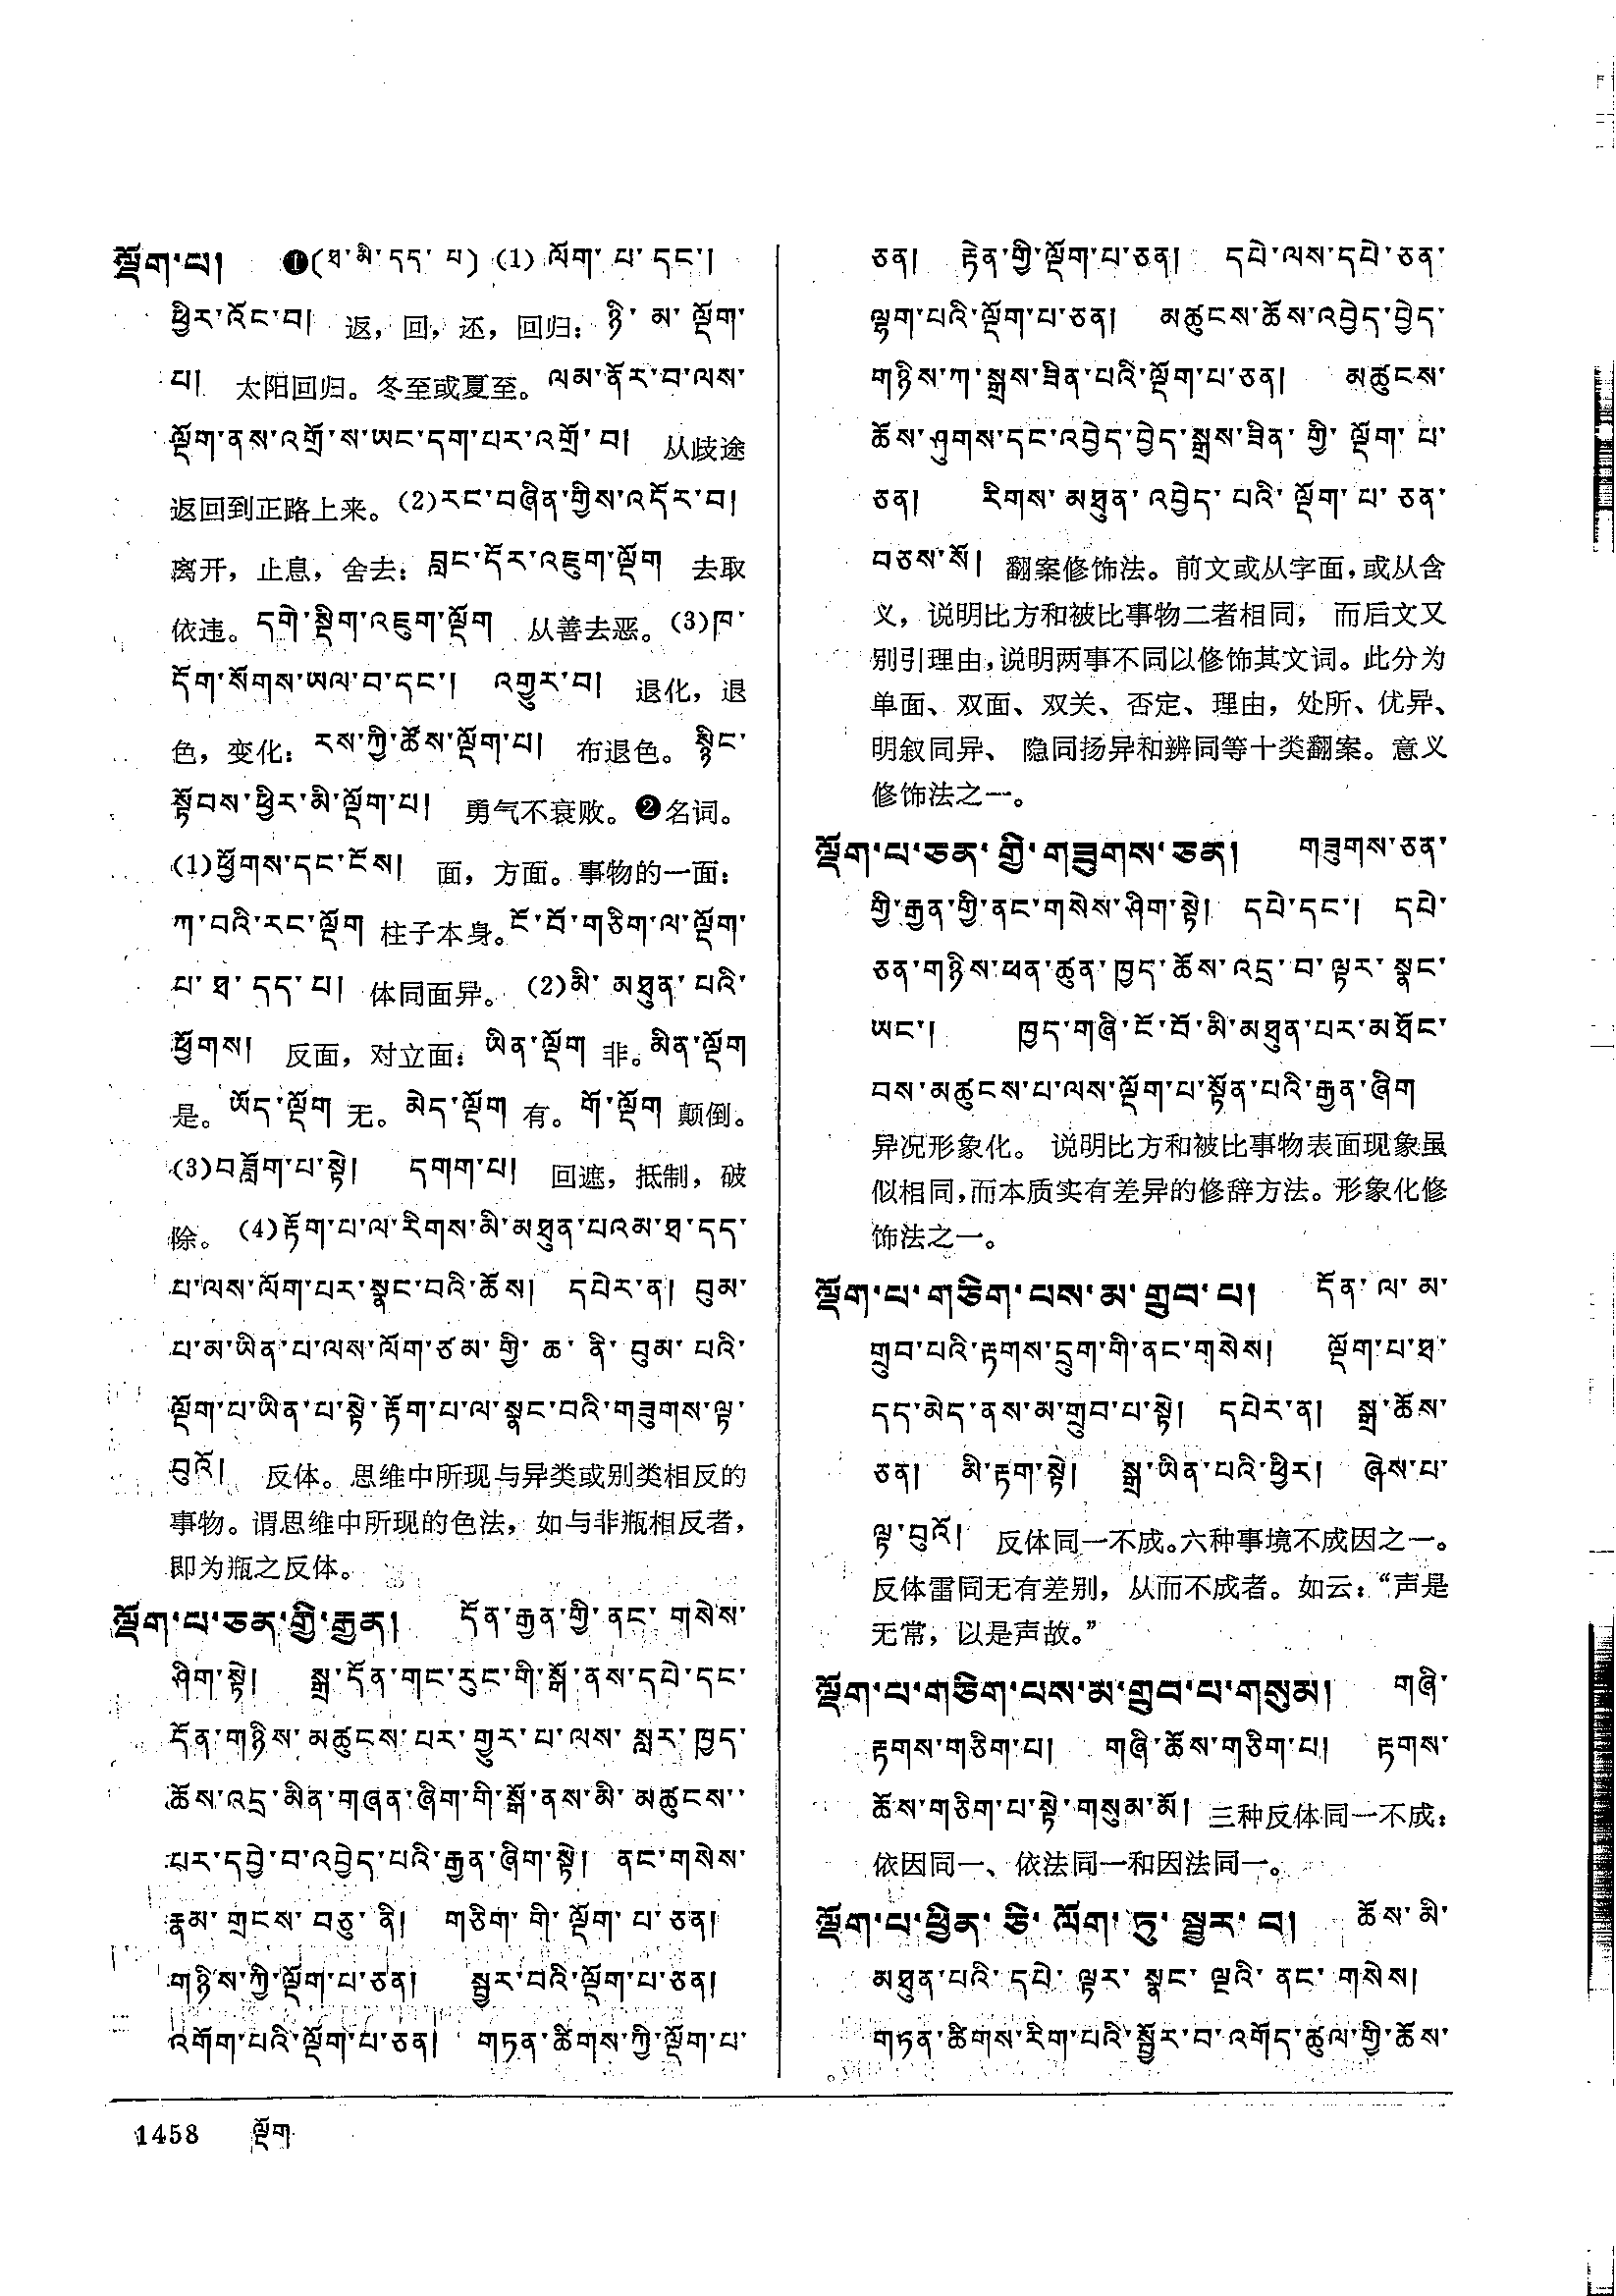 ལྡོག་པ། ❶(ཐ་མི་དད་པ) (1) ལོག་པ་དང་།
ཕྱིར་འོང་བ། 返，回，还，回归：ཉི་མ་ལྡོག་
པ། 太阳回归。冬至或夏至。ལམ་ནོར་བ་ལས་
ལྡོག་ནས་འགྲོ་ས་ཡང་དག་པར་འགྲོ་བ། 从歧途
返回到正路上来。(2)རང་བཞིན་གྱིས་འདོར་བ།
离开，止息，舍去：བླང་དོར་འཇུག་ལྡོག 去取
依违。དགེ་སྡིག་འཇུག་ལྡོག 从善去恶。(3)ཁ་
དོག་སོགས་ཡལ་བ་དང་། འགྱུར་བ། 退化，退
色，变化：རས་ཀྱི་ཚོས་ལྡོག་པ། 布退色。སྙིང་
སྟོབས་ཕྱིར་མི་ལྡོག་པ། 勇气不衰败。❷名词。
(1)ཕྱོགས་དང་ངོས། 面，方面。事物的一面：
ཀ་བའི་རང་ལྡོག 柱子本身。ངོ་བོ་གཅིག་ལ་ལྡོག་
པ་ཐ་དད་པ། 体同面异。(2)མི་མཐུན་པའི་
ཕྱོགས། 反面，对立面：ཡིན་ལྡོག 非。མིན་ལྡོག
是。ཡོད་ལྡོག 无。མེད་ལྡོག 有。གོ་ལྡོག 颠倒。
(3)བཟློག་པ་སྟེ། དགག་པ། 回遮，抵制，破
除。(4)རྟོག་པ་ལ་རིགས་མི་མཐུན་པའམ་ཐ་དད་
པ་ལས་ལོག་པར་སྣང་བའི་ཆོས། དཔེར་ན། བུམ་
པ་མ་ཡིན་པ་ལས་ལོག་ཙམ་གྱི་ཆ་ནི་བུམ་པའི་
ལྡོག་པ་ཡིན་པ་སྟེ་རྟོག་པ་ལ་སྣང་བའི་གཟུགས་ལྟ་
བུའོ། 反体。思维中所现与异类或别类相反的
事物。谓思维中所现的色法，如与非瓶相反者，
即为瓶之反体。
ལྡོག་པ་ཅན་གྱི་རྒྱན། དོན་རྒྱན་གྱི་ནང་གསེས་
ཤིག་སྟེ། སྒྲ་དོན་གང་རུང་གི་སྒོ་ནས་དཔེ་དང་
དོན་གཉིས་མཚུངས་པར་གྱུར་པ་ལས་སླར་ཁྱད་
ཆོས་འདྲ་མིན་གཞན་ཞིག་གི་སྒོ་ནས་མི་མཚུངས་
པར་དབྱེ་བ་འབྱེད་པའི་རྒྱན་ཞིག་སྟེ། ནང་གསེས་
རྣམ་གྲངས་བཅུ་ནི། གཅིག་གི་ལྡོག་པ་ཅན།
གཉིས་ཀྱི་ལྡོག་པ་ཅན། སྦྱར་བའི་ལྡོག་པ་ཅན།
འགོག་པའི་ལྡོག་པ་ཅན། གཏན་ཚིགས་ཀྱི་ལྡོག་པ་
ཅན། རྟེན་གྱི་ལྡོག་པ་ཅན། དཔེ་ལས་དཔེ་ཅན་
ལྷག་པའི་ལྡོག་པ་ཅན། མཚུངས་ཆོས་འབྱེད་བྱེད་
གཉིས་ཀ་སྒྲས་ཟིན་པའི་ལྡོག་པ་ཅན། མཚུངས་
ཆོས་ཤུགས་དང་འབྱེད་བྱེད་སྒྲས་ཟིན་གྱི་ལྡོག་པ་
ཅན། རིགས་མཐུན་འབྱེད་པའི་ལྡོག་པ་ཅན་
བཅས་སོ། 翻案修饰法。前文或从字面，或从含
义，说明比方和被比事物二者相同，而后文又
别引理由，说明两事不同以修饰其文词。此分为
单面、双面、双关、否定、理由，处所、优异、
明叙同异、隐同扬异和辨同等十类翻案。意义
修饰法之一。
ལྡོག་པ་ཅན་གྱི་གཟུགས་ཅན། གཟུགས་ཅན་
གྱི་རྒྱན་གྱི་ནང་གསེས་ཤིག་སྟེ། དཔེ་དང་། དཔེ་
ཅན་གཉིས་ཕན་ཚུན་ཁྱད་ཆོས་འདྲ་བ་ལྟར་སྣང་
ཡང་། ཁྱད་གཞི་ངོ་བོ་མི་མཐུན་པར་མཐོང་
བས་མཚུངས་པ་ལས་ལྡོག་པ་སྟོན་པའི་རྒྱན་ཞིག
异况形象化。说明比方和被比事物表面现象虽
似相同，而本质实有差异的修辞方法。形象化修
饰法之一。
ལྡོག་པ་གཅིག་པས་མ་གྲུབ་པ། དོན་ལ་མ་
གྲུབ་པའི་རྟགས་དྲུག་གི་ནང་གསེས། ལྡོག་པ་ཐ་
དད་མེད་ནས་མ་གྲུབ་པ་སྟེ། དཔེར་ན། སྒྲ་ཆོས་
ཅན། མི་རྟག་སྟེ། སྒྲ་ཡིན་པའི་ཕྱིར། ཞེས་པ་
ལྟ་བུའོ། 反体同一不成。六种事境不成因之一。
反体雷同无有差别，从而不成者。如云：“声是
无常，以是声故。”
ལྡོག་པ་གཅིག་པས་མ་གྲུབ་པ་གསུམ། གཞི་
རྟགས་གཅིག་པ། གཞི་ཆོས་གཅིག་པ། རྟགས་
ཆོས་གཅིག་པ་སྟེ་གསུམ་མོ། 三种反体同一不成：
依因同一、依法同一和因法同一。
ལྡོག་པ་ཕྱིན་ཅི་ལོག་ཏུ་སྦྱར་བ། ཆོས་མི་
མཐུན་པའི་དཔེ་ལྟར་སྣང་ལྔའི་ནང་གསེས།
གཏན་ཚིགས་རིག་པའི་སྦྱོར་བ་འགོད་ཚུལ་གྱི་ཆོས་
1458 ལྡོག